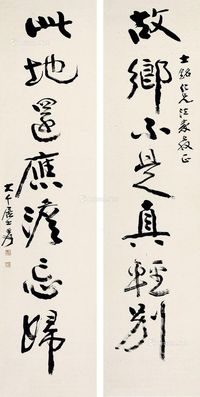 士銘仁兄法家教正
故鄉不是真輕別
此地還應淡忘歸
大千居士爰